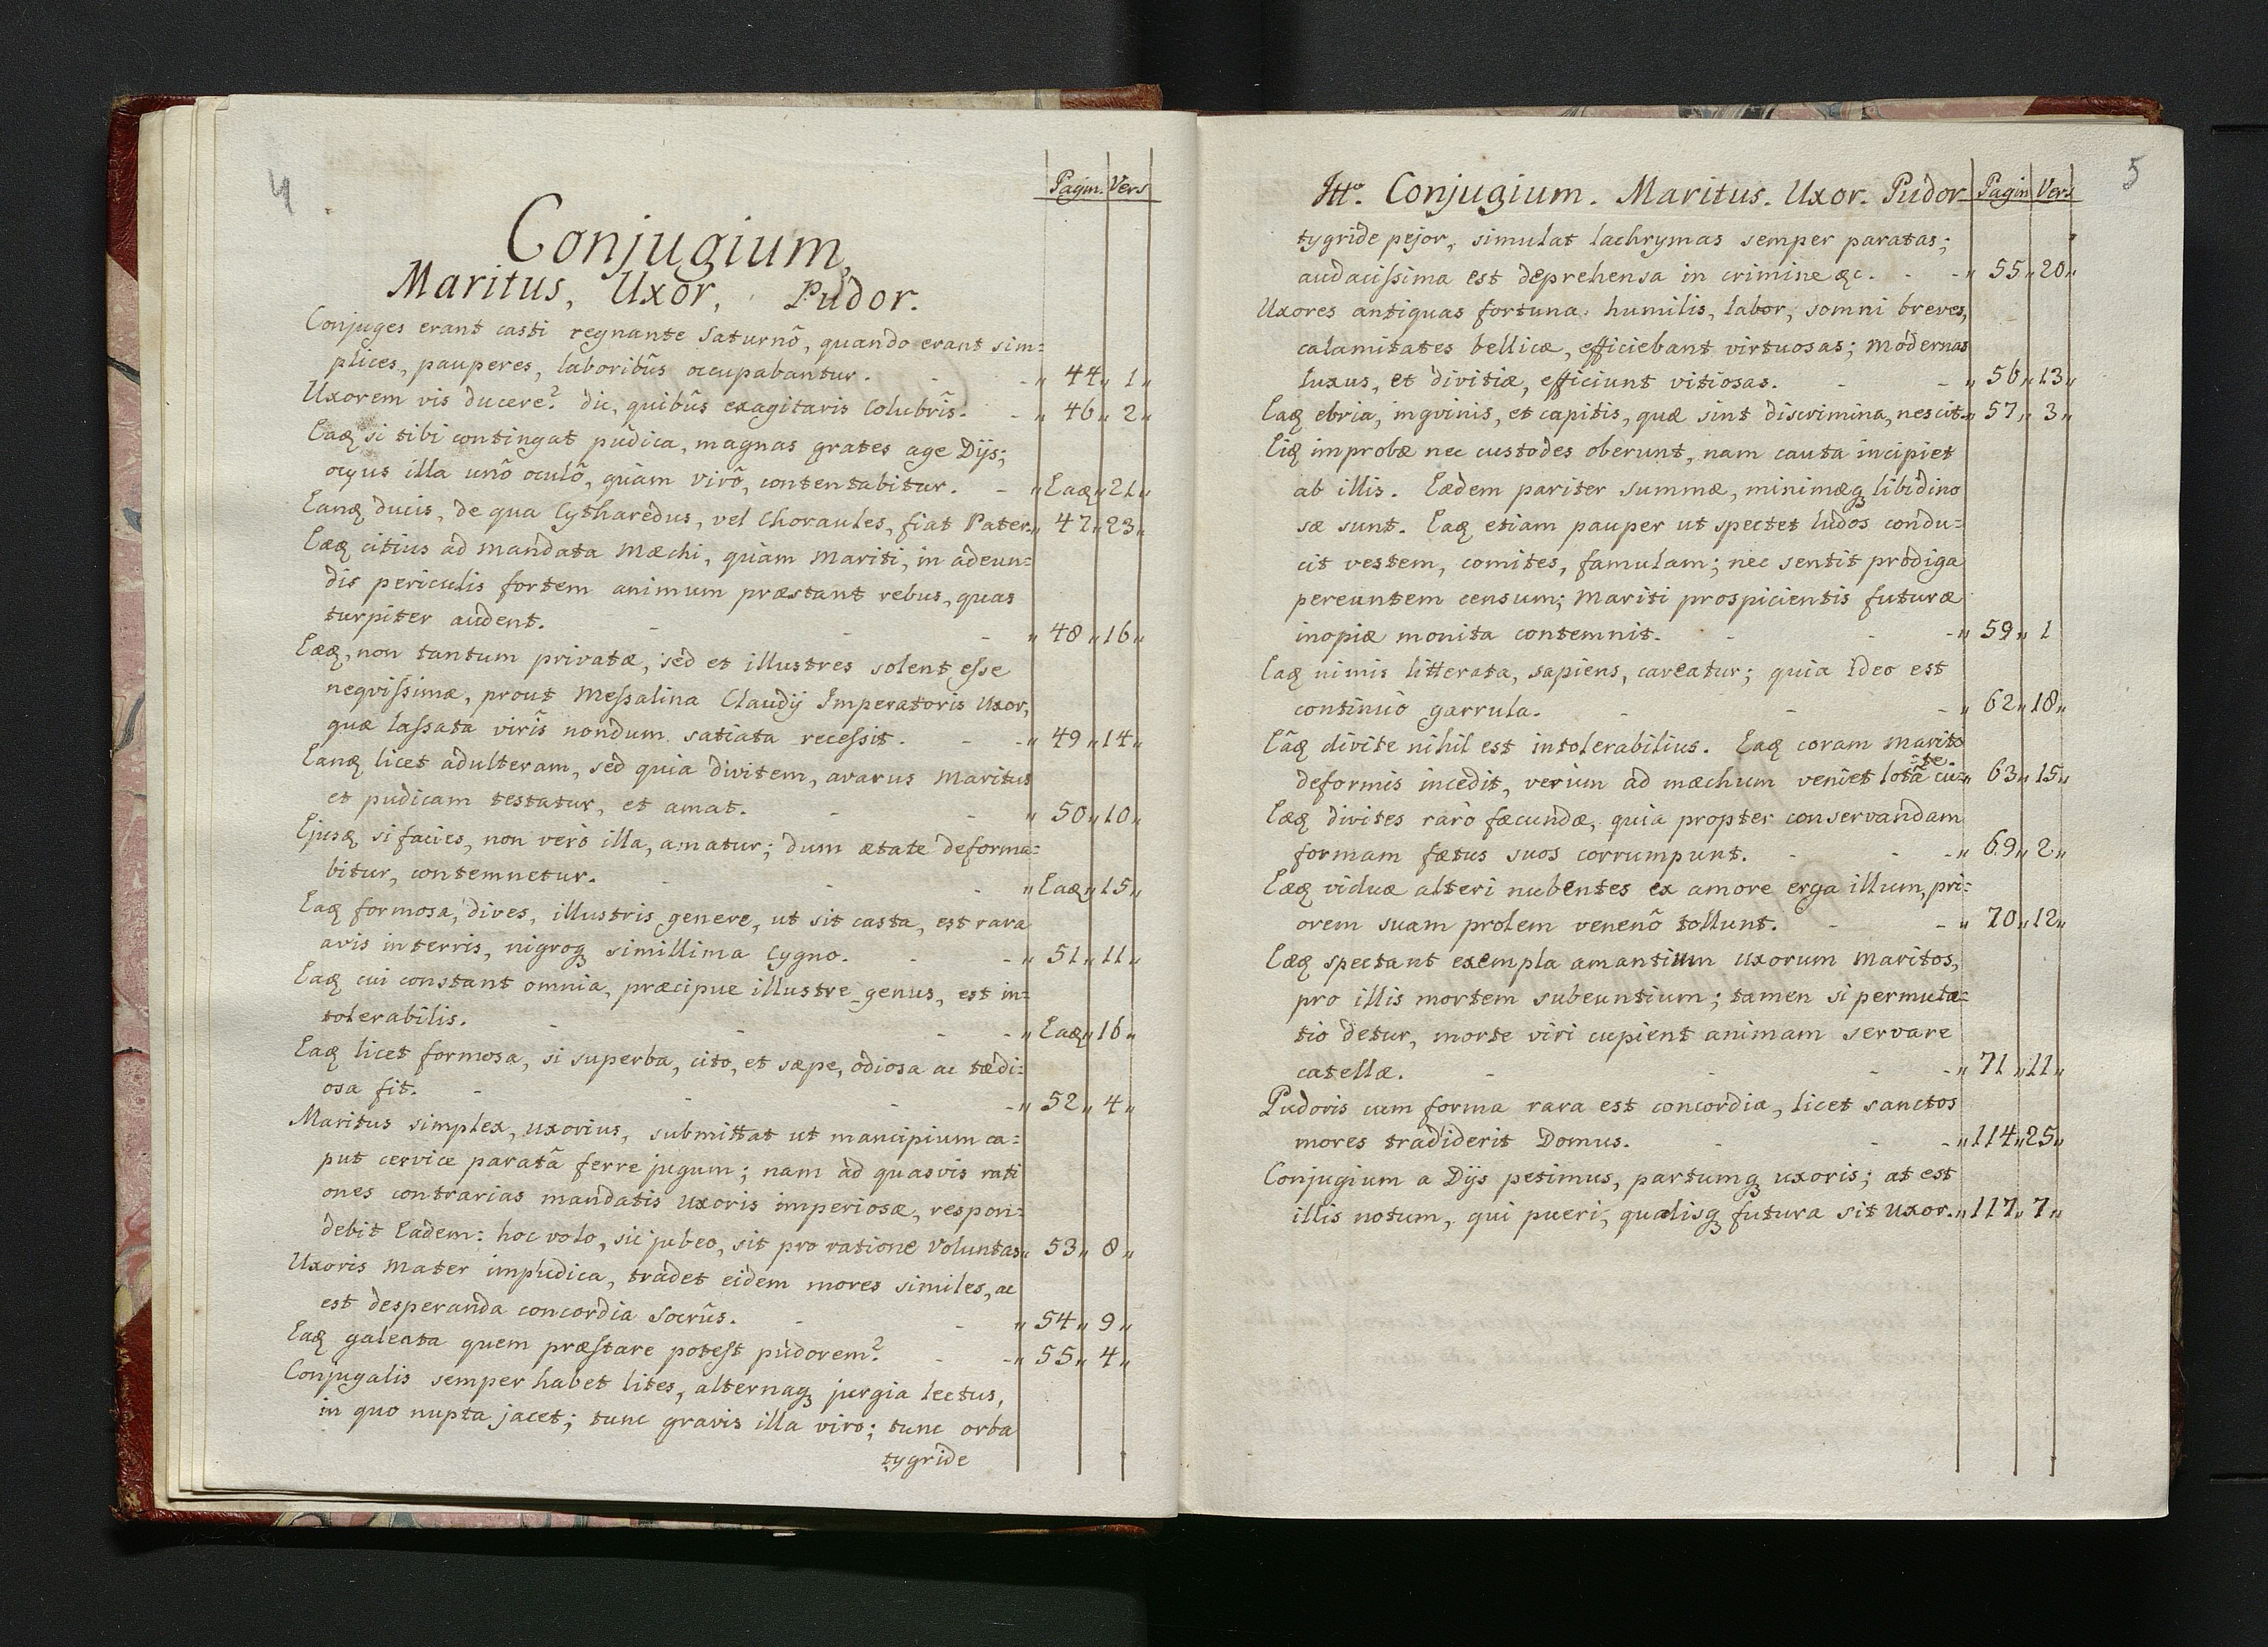 4
Pagin. Vers
Conjugium,
Maritus, Uxor, Pudor.
Conjuges erant casti regnante Saturnô, quando erant sim=
plices, pauperes, laboribûs occupabantur. - - „ 44 „ 1 „
Uxorem vis ducere? dic, quibûs exagitaris Colubrîs. - „ 46 „ 2 „
Eaq̃ si tibi contingat pudica, magnas grates age Dijs;
ocyus illa unô oculô, quàm virô, contentabitur. - „ Eaq̃ „ 21 „
Eanq̃ ducis, de qua Cytharedus, vel Choraules, fiat Pater „ 47 „ 23 „
Eæq̃ citius ad mandata Mæchi, quàm Mariti, in adeun=
dis periculis fortem animum præstant rebus, quas
turpiter audent. - - - „ 48 „ 16 „
Eæq̃, non tantum privatæ, sed et illustres solent esse
neqvissimæ, prout Messalina Claudij Imperatoris Uxor,
quæ lassata virîs nondum satiata recessit. - - „ 49 „ 14 „
Eanq̃ licet adulteram, sed quia divitem, avarus Maritus
et pudicam testatur, et amat. - - „ 50 „ 10 „
Ejusq̃ si facies, non verò illa, amatur; dum ætate deforma=
bitur, contemnetur. - - - „ Eaq̃ „ 15 „
Eaq̃ formosa, dives, illustris genere, ut sit casta, est rara
avis in terris, nigroq̃ simillima Cygno. - - „ 51 „ 11 „
Eaq̃ cui constant omnia, præcipue illustre genus, est in=
tolerabilis. - - - - „ Eaq̃ „ 16 „
Eaq̃ licet formosa, si superba, cito, et sæpe, odiosa ac tædi=
osa fit. - - - - „ 52 „ 4 „
Maritus simplex, uxorius, submittat ut mancipium ca=
put cervice paratâ ferre jugum; nam ad quasvis rati
ones contrarias mandatis uxoris imperiosæ, respon=
debit Eadem: hoc volo, sic jubeo, sit pro ratione Voluntas „ 53 „ 8 „
Uxoris Mater impudica, tradet eidem mores similes, ac
est desperanda concordia Socrûs. - - „ 54 „ 9 „
Eaq̃ galeata quem præstare potest pudorem? - - „ 55 „ 4 „
Conjugalis semper habet lites, alternaq̃ jurgia lectus,
in quo nupta jacet; tunc gravis illa viro; tunc orba
tygride
5
Itt̊. Conjugium. Maritus. Uxor. Pudor Pagin Vers
tygride pejor, simulat lachrymas semper paratas;
audacissima est deprehensa in crimine &c. - - „ 55 „ 20 „
Uxores antiquas fortuna humilis, labor, somni breves,
calamitates bellicæ, efficiebant virtuosas; modernas
luxus, et divitiæ, efficiunt vitiosas. - - „ 56 „ 13 „
Eaq̃ ebria, ingvinis, et capitis, quæ sint discrimina, nescit „ 57 „ 3 „
Eiq̃ improbæ nec custodes oberunt, nam cauta incipiet
ab illis. Eædem pariter summæ, minimæq̃ libidino
sæ sunt. Eaq̃ etiam pauper ut spectet ludos condu=
cit vestem, comites, famulam; nec sentit prodiga
pereuntem censum; Mariti prospicientis futuræ
inopiæ monita contemnit. - - - „ 59 „ 1
Eaq̃ nimis litterata, sapiens, caveatur; quia ideo est
continuò garrula. - - - „ 62 „ 18 „
Eâq̃ divite nihil est intolerabilius. Eaq̃ coram marito
deformis incedit, verùm ad mæchum veniet lotâ cu=te. „ 63 „ 15 „
Eæq̃ divites rarò fæcundæ, quia propter conservandam
formam fætus suos corrumpunt. - - - „ 69 „ 2 „
Eæq̃ viduæ alteri nubentes ex amore erga illum, pri=
orem suam prolem venenô tollunt. - - „ 70 „ 12 „
Eæq̃ spectant exempla amantium uxorum Maritos,
pro illis mortem subeuntium; tamen si permuta=
tio detur, morte viri cupient animam servare
catellæ. - - - - „ 71 „ 11 „
Pudoris cum forma rara est concordia, licet sanctos
mores tradiderit Domus. - - - „ 114 „ 25 „
Conjugium a Dijs petimus, partumq̃ uxoris; at est
illis notum, qui pueri, qualisq̃ futura sit uxor. „ 117 „ 7 „